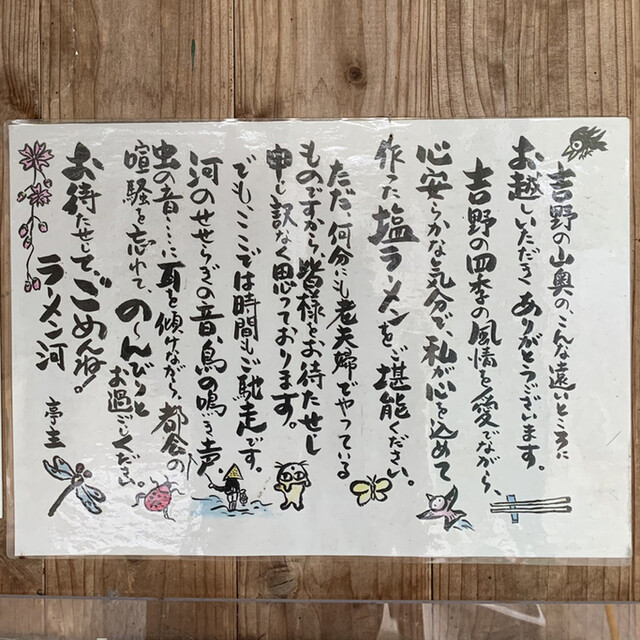 吉野の山奥の、こんな遠いところに
お越しいただきありがとうございます。
吉野の四季の風情を愛でながら、
心安らかな気分で、私が心を込めて
作った塩ラーメンをご堪能ください。
ただ、何分にも老夫婦でやっている
ものですから皆様をお待たせし
申し訳なく思っております。
でも、ここでは時間もご馳走です。
河のせせらぎの音、鳥の鳴き声、
虫の音……に耳を傾けながら、都会の
喧騒を忘れて、の〜んびりと
お過ごしください。
お待たせして、ごめんね!
ラーメン河 亭主